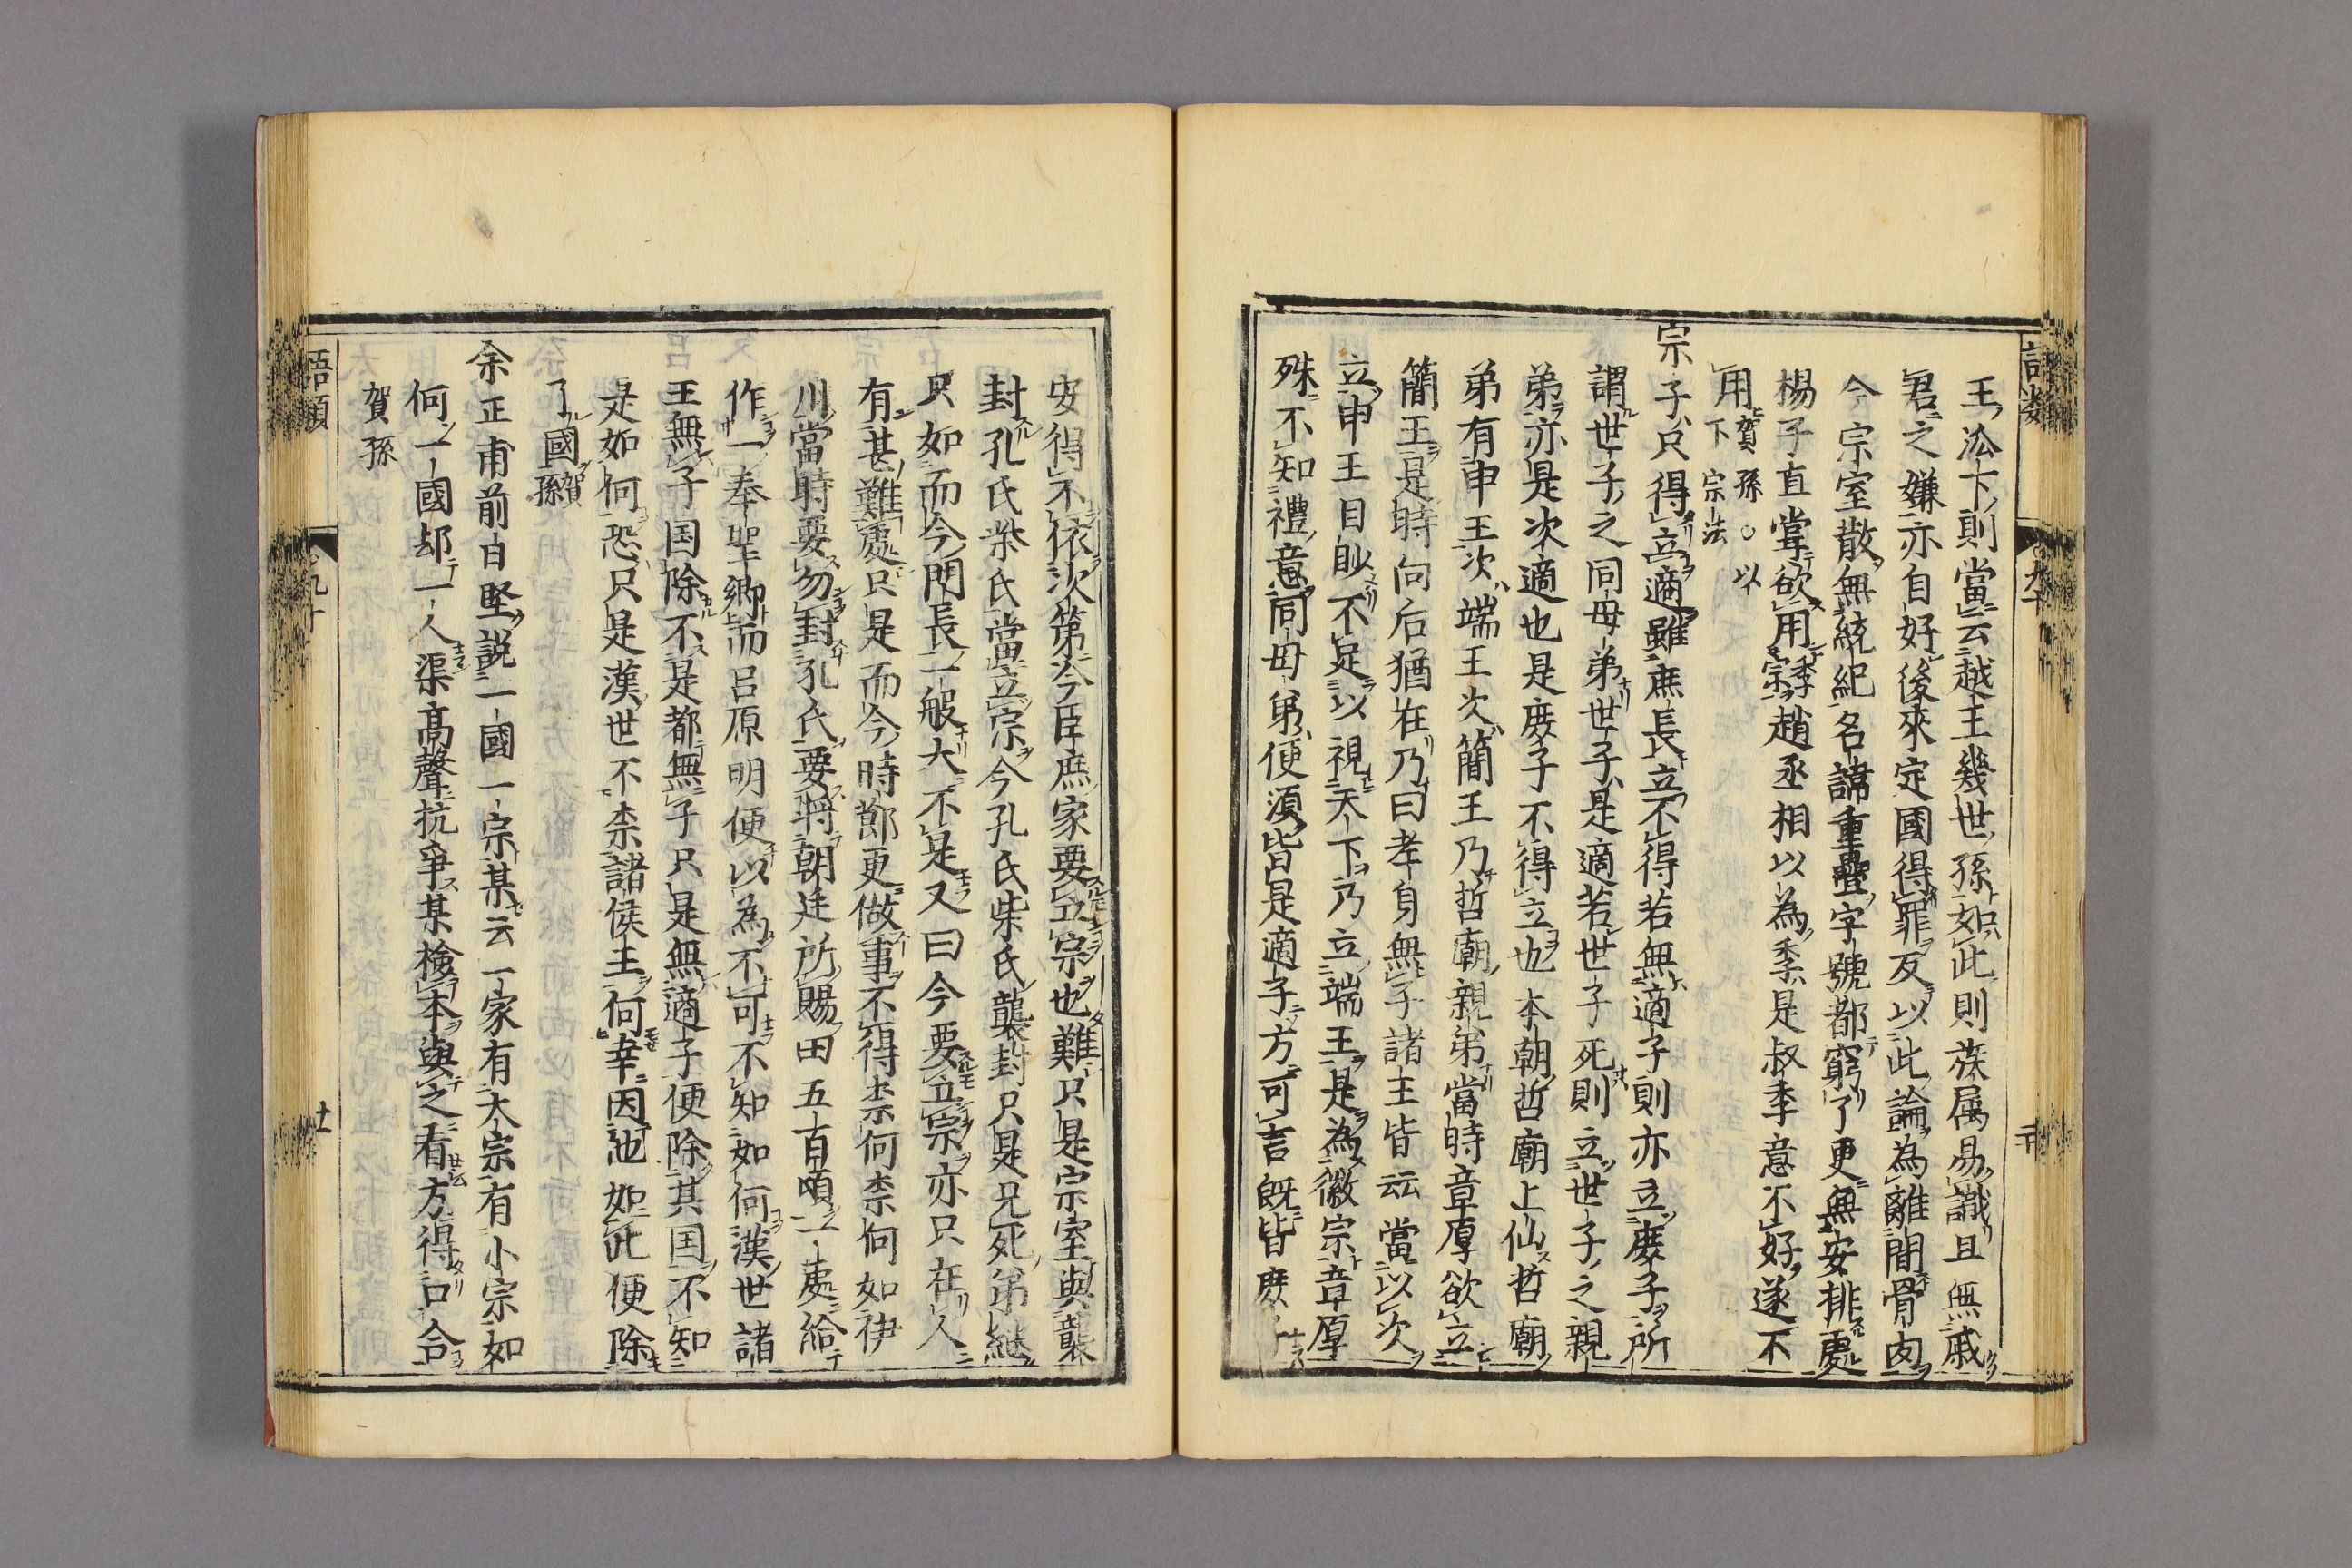 王泒下則當云越王幾世孫如此則族属易識且無戚
君之嫌亦自好後來定國得罪反以此論為離間骨肉
今宗室散無統紀名諱重疊字號都窮了更無安排處
楊子直嘗欲用季宗趙丞相以為季是叔季意不好遂不
用賀孫○以
下宗法
宗子只得立適雖庶長立不得若無適子則亦立庶子所
謂世子之同母弟世子是適若世子死則立世子之親
弟亦是次適也是庶子不得立也本朝哲廟上仙哲廟
弟有申王次端王次簡王乃哲廟親弟當時章厚欲立
簡王是時向后猶在乃曰孝身無子諸王皆云當以次
立申王目眇不足以視天下乃立端王是為徽宗章厚
殊不知禮意同母弟便須皆是適子方可言既皆庶子
安得不依次第今臣庶家要立宗也難只是宗室與襲
封孔氏柴氏當立宗今孔氏柴氏襲封只是兄死弟継
只如而今門長一般大不是又曰今要立宗亦只在人
有甚難處只是而今時節更做事不得柰何柰何如伊
川當時要勿封孔氏要將朝廷所賜田五百頃一處給
作一奉聖鄉而呂原明便以為不可不知如何漢世諸
王無子国除不是都無子只是無適子便除其国不知
是如何恐只是漢世不柰諸侯王何幸因他如此便除
了國賀孫
余正甫前日堅説一國一宗某云一家有大宗有小宗如
何一國却一人渠高聲抗爭某檢本與之看方得口合
賀孫
語類
九十
廿